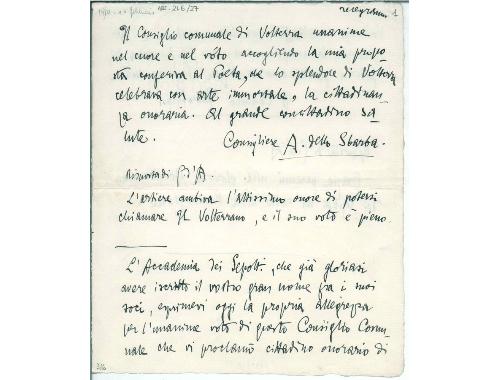 telegrammi 1
Il Consiglio comunale di Volterra unanime
nel cuore e nel voto accogliendo la mia propo
sta conferiva al Poeta, che lo splendore di Volterra
celebrava con arte immortale, la cittadinan-
za onoraria. Al grande concittadino sa-
lute.
Consigliere A. dello Sbarba.
Risposta di G. d'A.
L'artiere ambiva l'altissimo onore di potersi
chiamare Il Volterrano, e il suo voto è pieno.
L'Accademia dei Sepolti, che già gloriasi
avere iscritto il vostro gran nome fra i suoi
soci, esprimevi oggi la propria allegrezza
per l'unanime voto di questo Consiglio Comu-
nale che vi proclamò cittadino onorario di